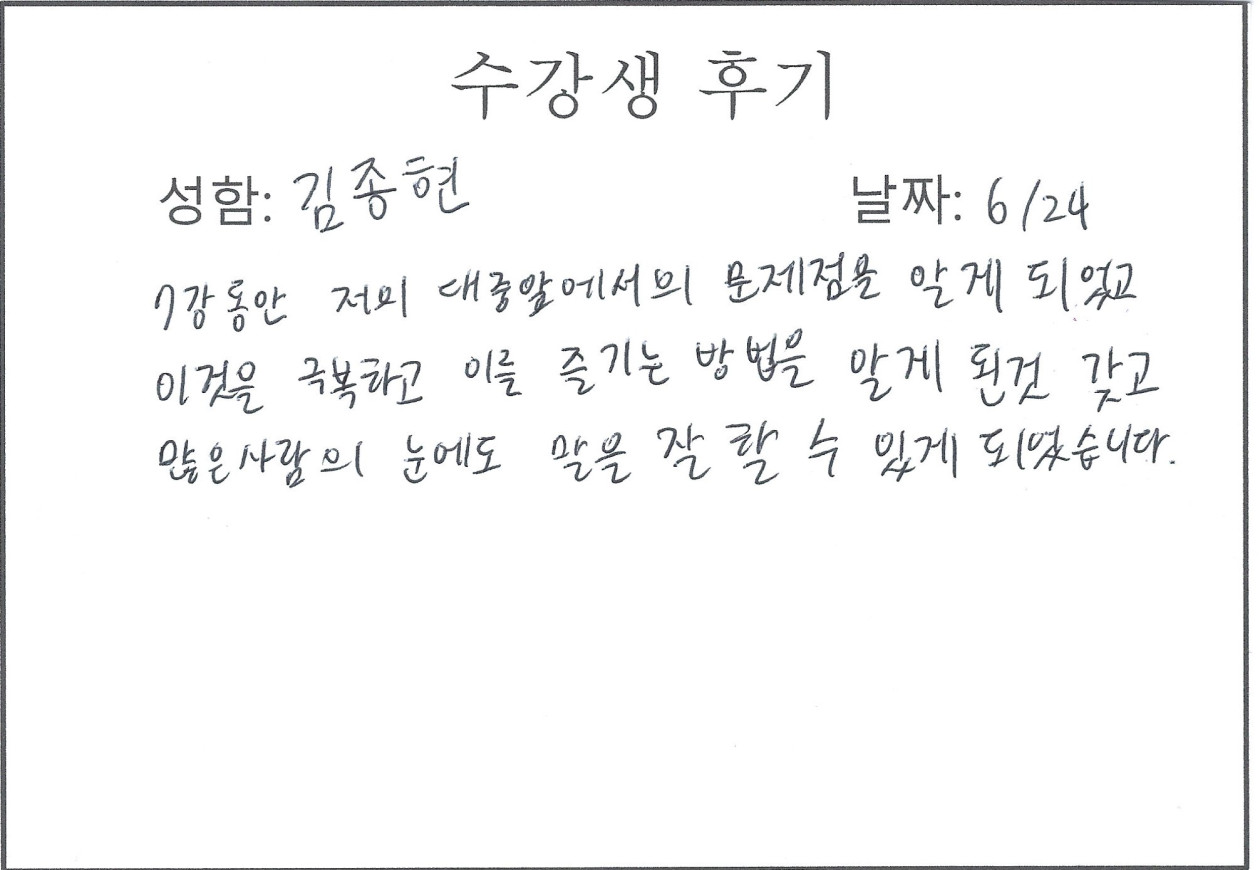 수강생 후기
성함: 김종현 날짜: 6/24
7강동안 저의 대중앞에서의 문제점을 알게 되었고
이것을 극복하고 이를 즐기는 방법을 알게 된것 같고
많은사람의 눈에도 말을 잘 할 수 있게 되었습니다.